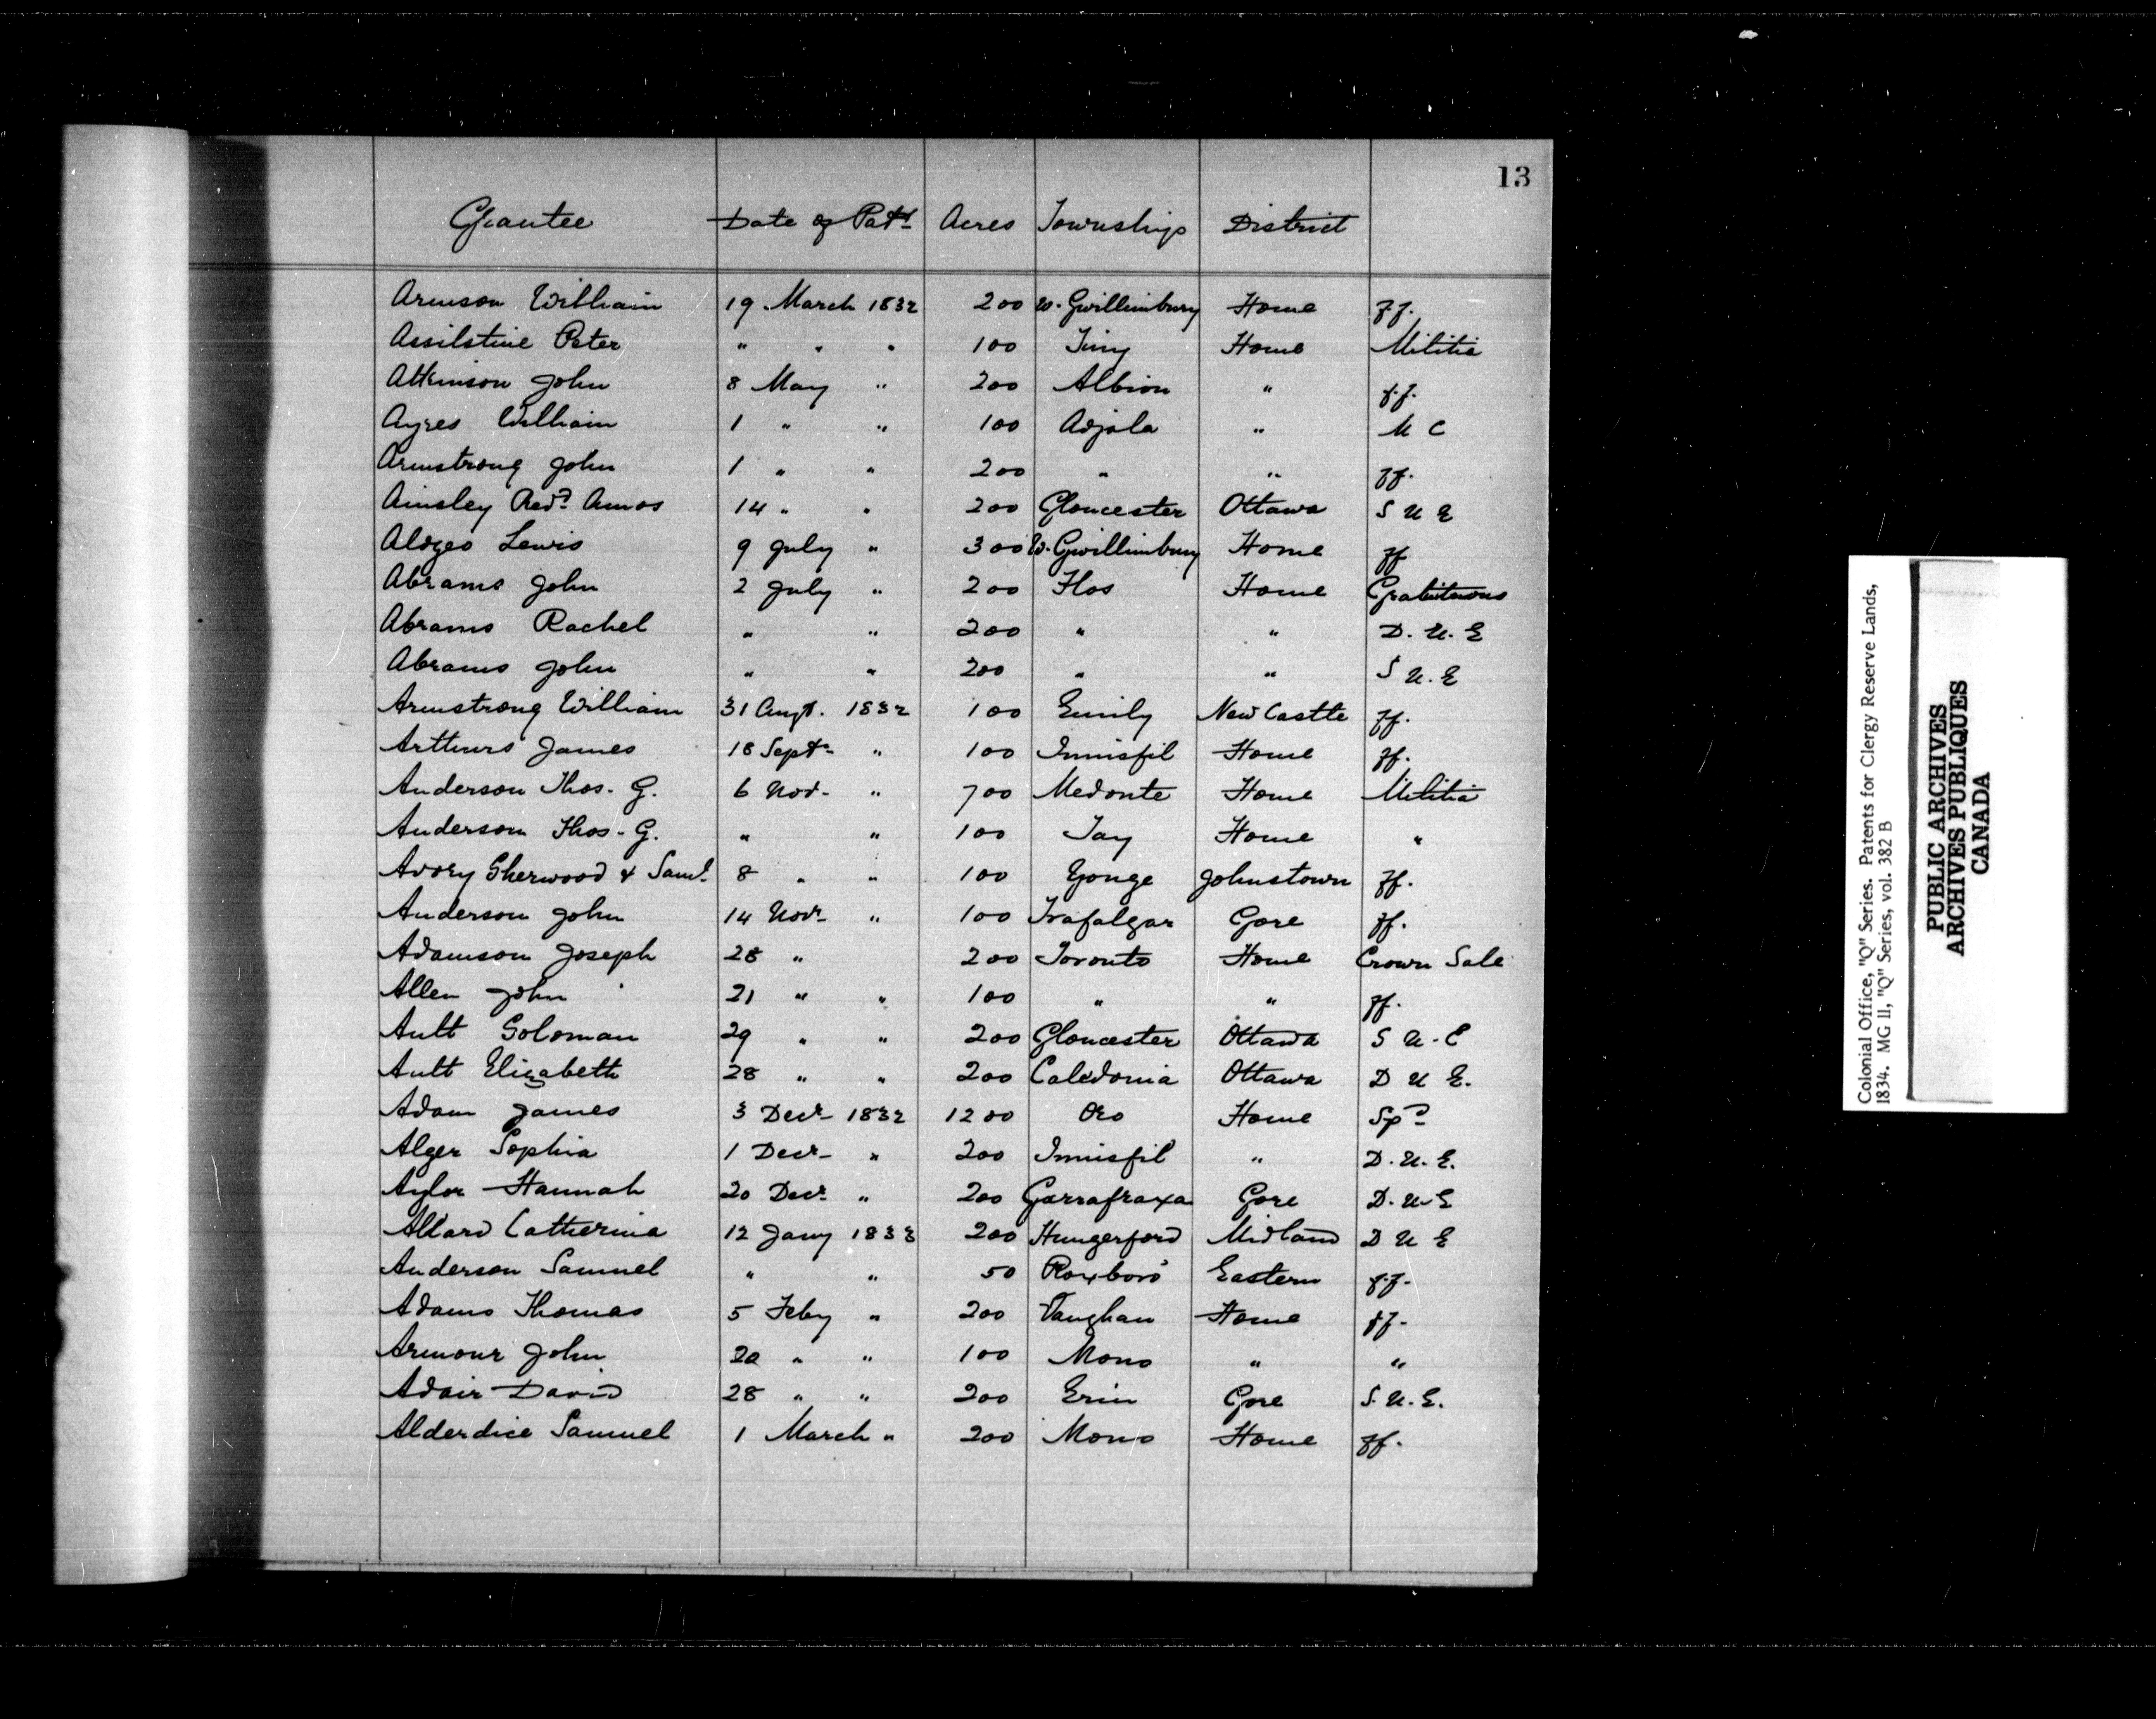 13
Grantee Date of Patt Acres Township District
Armson William 19 March 1832 200 W. Gwillimbury Home ff.
Assilstine Peter " " " 100 Tiny Home Militia
Atkinson John 8 May " 200 Albion " f.f.
Ayres William 1 " " 100 Adjala " M C
Armstrong John 1 " " 200 " " ff.
Ainsley Revd Amos 14 " " 200 Gloucester Ottawa S U E
Aldgeo Lewis 9 July " 300 W. Gwillimbury Home ff
Abrams John 2 July " 200 Flos Home Gratuitous
Abrams Rachel " " 200 " " D. U. E
Abrams John " " 200 " " S U. E
Armstrong William 31 Augt. 1832 100 Emily New Castle ff.
Arthurs James 18 Septr " 100 Innisfil Home ff.
Anderson Thos. G. 6 Nov. " 700 Medonte Home Militia
Anderson Thos. G. " " 100 Tay Home "
Avory Sherwood & Saml. 8 " " 100 Yonge Johnstown ff.
Anderson John 14 Novr " 100 Trafalgar Gore ff.
Adamson Joseph 28 " 200 Toronto Home Crown Sale
Allen John 21 " " 100 " " ff.
Ault Soloman 29 " " 200 Gloucester Ottawa S U. E
Ault Elizabeth 28 " " 200 Caledonia Ottawa D U E.
Adam James 3 Decr 1832 1200 Oro Home Spd
Alger Sophia 1 Decr " 200 Innisfil " D. U. E.
Aylor Hannah 20 Decr " 200 Garrafraxa Gore D. U E
Allard Catherina 12 Jany 1833 200 Hungerford Midland D U E
Anderson Samuel " " 50 Roxboro' Eastern f.f.
Adams Thomas 5 Feby " 200 Vaughan Home ff.
Armour John 20 " " 100 Mono " "
Adair David 28 " " 200 Erin Gore S. U. E.
Alderdice Samuel 1 March " 200 Mono Home ff.
Colonial Office, "Q" Series. Patents for Clergy Reserve Lands,
1834. MG 11, "Q" Series, vol. 382 B
PUBLIC ARCHIVES
ARCHIVES PUBLIQUES
CANADA